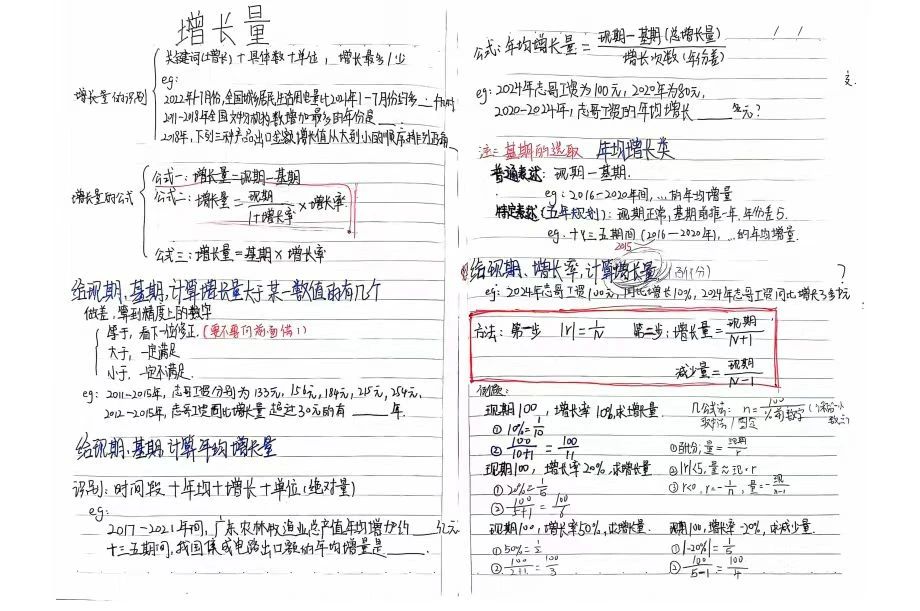 增长量
增长量的识别
关键词(增长)+具体数+单位，增长最多/少
eg:
2022年1-7月份,全国城乡居民生活用电量比2021年1-7月份约多
2011-2018年全国文物机构数增加最多的年份是____.
2018年,下列三种产品出口金额增长值从大到小的顺序排列正确
增长量的公式
公式一:增长量=现期-基期
公式二:增长量=现期/1+增长率×增长率
公式三:增长量=基期×增长率
给现期、基期,计算增长量大于某一数值的有几个
做差,量到精度上的数字
等于,看下一位修正.
大于,一定满足
小于,一定不满足.
eg:2011-2015年,志哥工资分别为133元,156元,184元,215元,254元,
2012-2015年,志哥工资同比增长量超过30元的有____年.
给现期、基期,计算年均增长量
识别:时间段+年均+增长+单位(绝对量)
eg:
2017-2021年间,广东农林牧渔业总产值年均增加约____亿元
十三五期间,我国集成电路出口额的年均增量是____.
公式:年均增长量=现期-基期(总增长量)/增长次数(年份差)
eg:2024年志哥工资为100元,2020年为80元,
2020-2024年,志哥工资的年均增长____元?
注:基期的选取 年均增长类
普通表述:现期-基期.
eg:2016-2020年间,…的年均增量
特定表述(五年规划):现期正常,基期前推一年,年份差5.
eg.十三五期间(2016-2020年),…的年均增量.
2015
给现期、增长率,计算增长量(百化分) ?
eg:2024年志哥工资100元,同比增长10%,2024年志哥工资同比增长了多少元
方法:第一步 |r|=1/N 第二步:增长量=现期/N+1
减少量=现期/N-1
例题:
现期100,增长率10%,求增长量.
①10%=1/10
②100/10+1=100/11
现期100,增长率20%,求增长量
①20%=1/5
②100/5+1=100/6
现期100,增长率50%,求增长量.
①50%=1/2
②100/2+1=100/3
公式法:n=100/%前数字
①百化分,量=现期/r
②|r|<5,量≈现·r
③r<0,r=-1/n,量=-现/n-1
现期100,增长率-20%,求减少量.
①|-20%|=1/5
②100/5-1=100/4